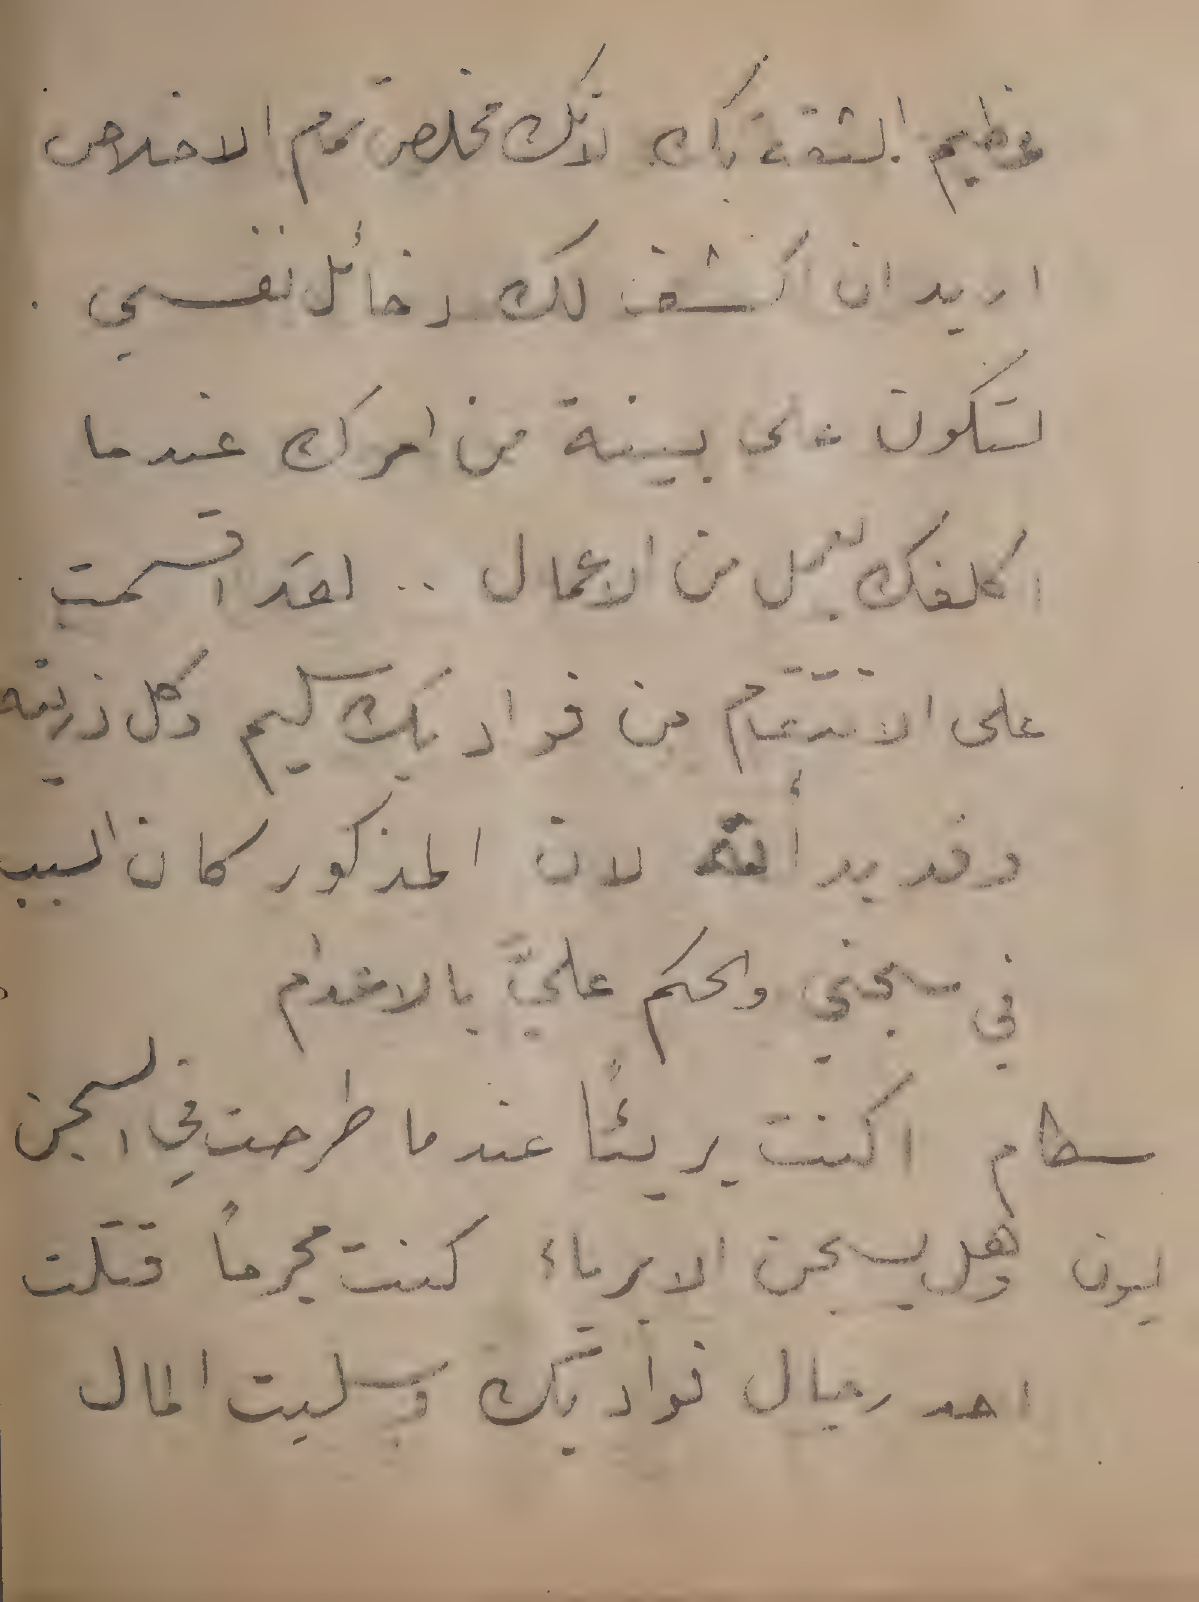 عظيم الثقة بك لانك مخلص تمام الاخلاص
اريد ان اكشف لك دخائل نفسي .
لتكون على بينة من امرك عندما
اكلفك بعمل من الاعمال .. لقد اقسمت
على الانتقام من فواد بك سليم وكل ذريته
وقد يد ألله لان المذكور كان السبب
في سجني والحكم عليَّ بالاعدام
سطام اكنت بريئًا عندما طرحت في السجن
ليون وهل يسجن الابرياء كنت مجرماً قتلت
احد رجال فواد بك وسلبت المال